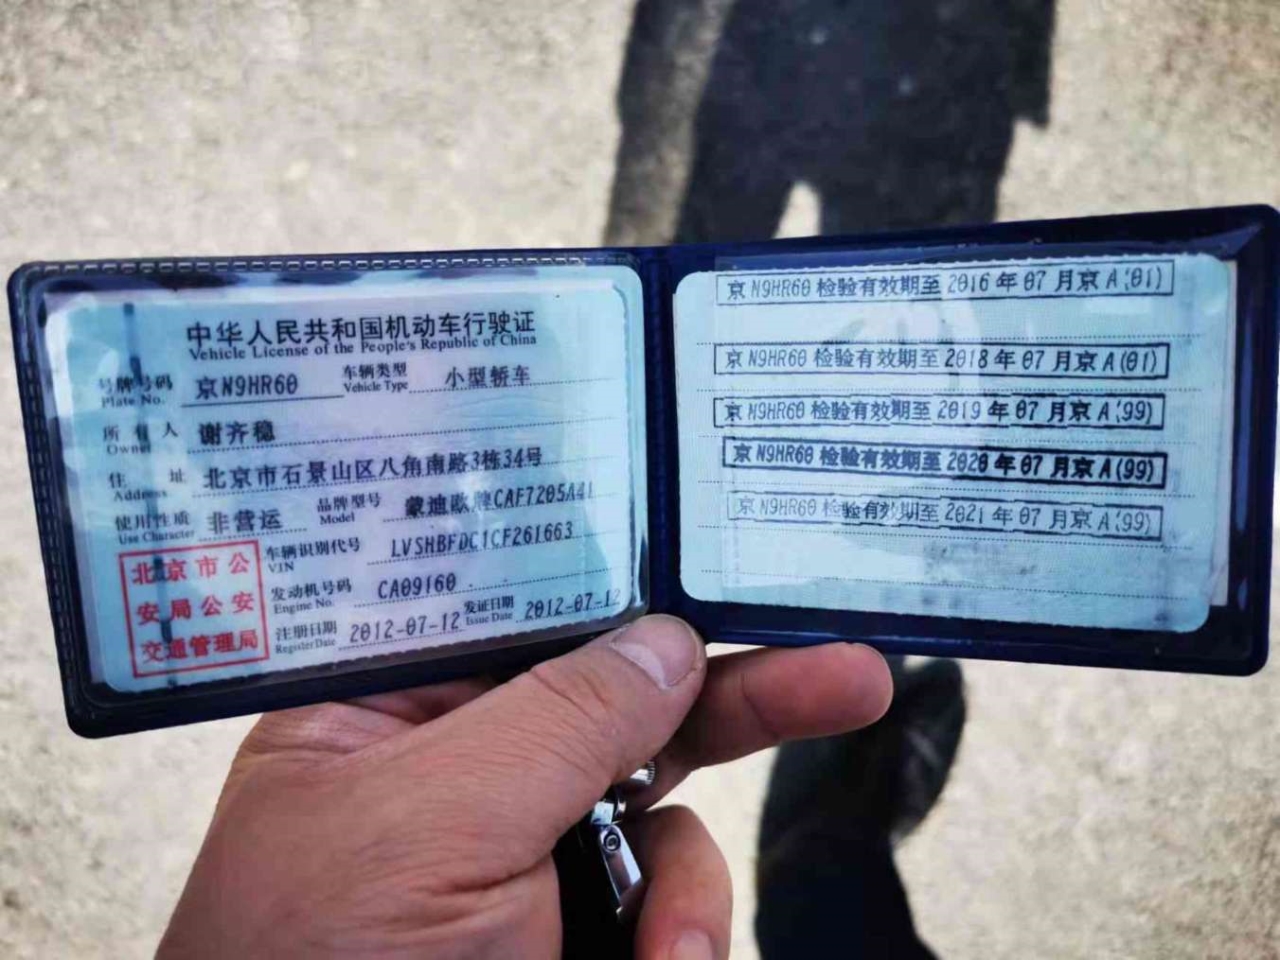 中华人民共和国机动车行驶证
Vehicle License of the People's Republic of China
号牌号码 京N9HR60 车辆类型 小型轿车
Plate No. Vehicle Type
所有人 谢齐稳
Owner
住址 北京市石景山区八角南路3栋34号
Address
使用性质 非营运 品牌型号 蒙迪欧牌CAF7205A41
Use Character Model
车辆识别代号 LVSHBFDC1CF261663
VIN
发动机号码 CA09160
Engine No.
注册日期 2012-07-12 发证日期 2012-07-12
Register Date Issue Date
北京市公
安局公安
交通管理局
京N9HR60检验有效期至2016年07月京A(01)
京N9HR60检验有效期至2018年07月京A(01)
京N9HR60检验有效期至2019年07月京A(99)
京N9HR60检验有效期至2020年07月京A(99)
京N9HR60检验有效期至2021年07月京A(99)